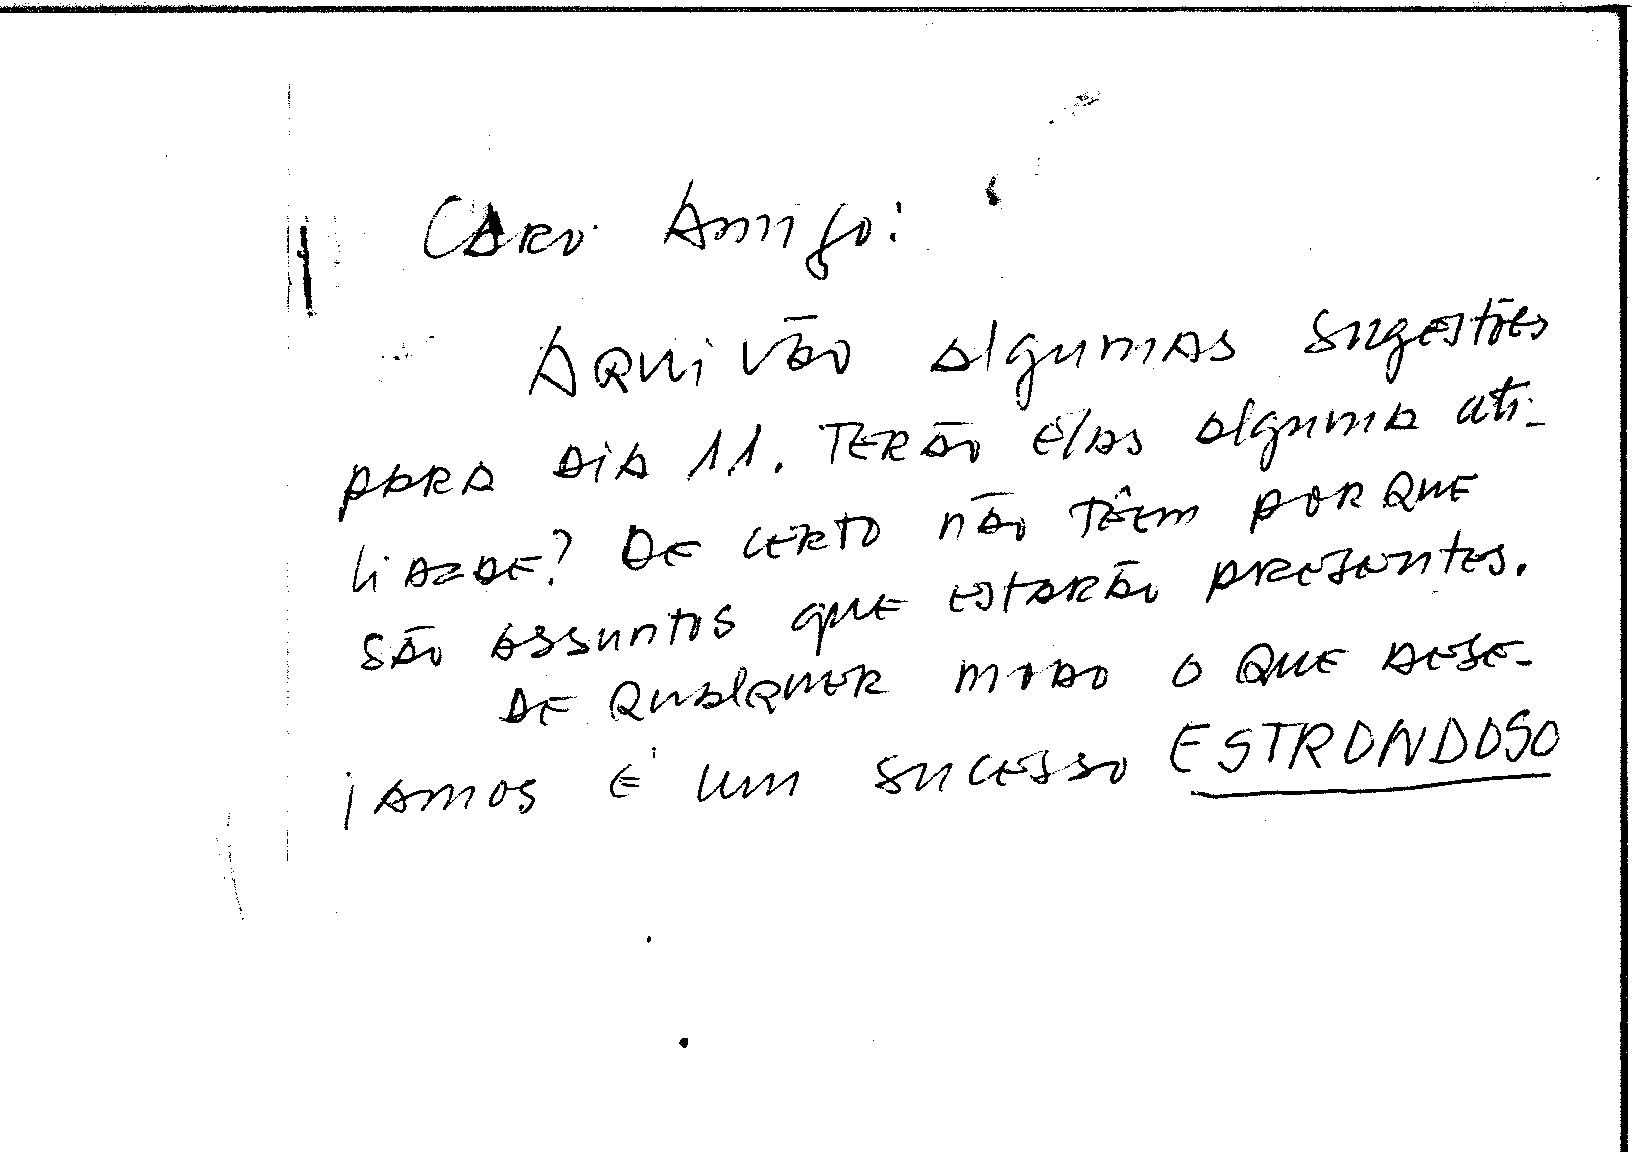 Caro Amigo:
Aqui vão algumas sugestões
para dia 11. Terão elas alguma uti-
lidade? De certo não têm porque
são assuntos que estarão presentes.
De qualquer modo o que dese-
jamos é um sucesso ESTRONDOSO